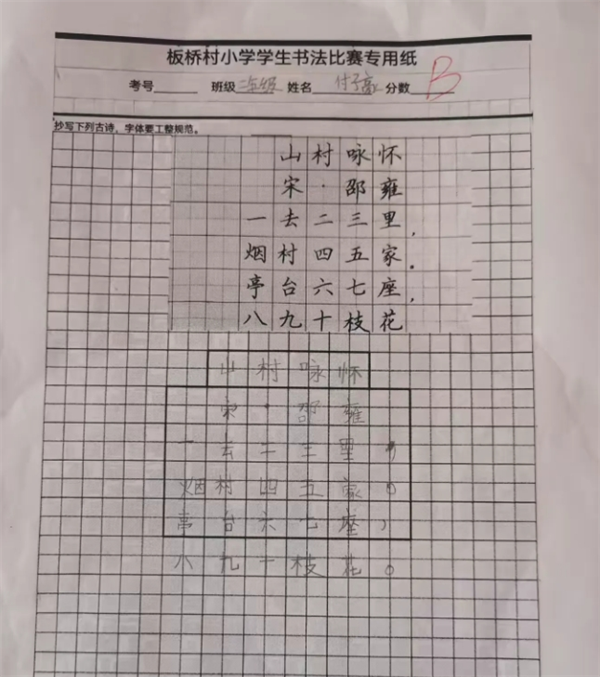 板桥村小学学生书法比赛专用纸
考号______ 班级二年级 姓名 付子豪 分数 B
抄写下列古诗，字体要工整规范。
山村咏怀
宋·邵雍
一去二三里，
烟村四五家。
亭台六七座，
八九十枝花
山村咏怀
宋·邵雍
一去二三里，
烟村四五家。
亭台六七座，
八九十枝花。